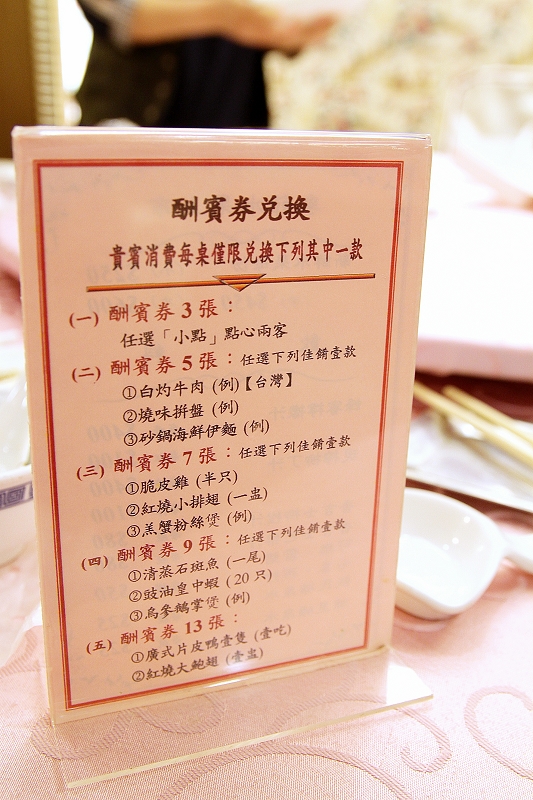 酬賓券兌換
貴賓消費每桌僅限兌換下列其中一款
(一) 酬賓券 3 張：
任選「小點」點心兩客
(二) 酬賓券 5 張：任選下列佳餚壹款
①白灼牛肉 (例)【台灣】
②燒味拼盤 (例)
③砂鍋海鮮伊麵 (例)
(三) 酬賓券 7 張：任選下列佳餚壹款
①脆皮雞 (半只)
②紅燒小排翅 (一盅)
③羔蟹粉絲煲 (例)
(四) 酬賓券 9 張：任選下列佳餚壹款
①清蒸石斑魚 (一尾)
②豉油皇中蝦 (20 只)
③烏參鵝掌煲 (例)
(五) 酬賓券 13 張：
①廣式片皮鴨壹隻 (壹吃)
②紅燒大鮑翅 (壹盅)